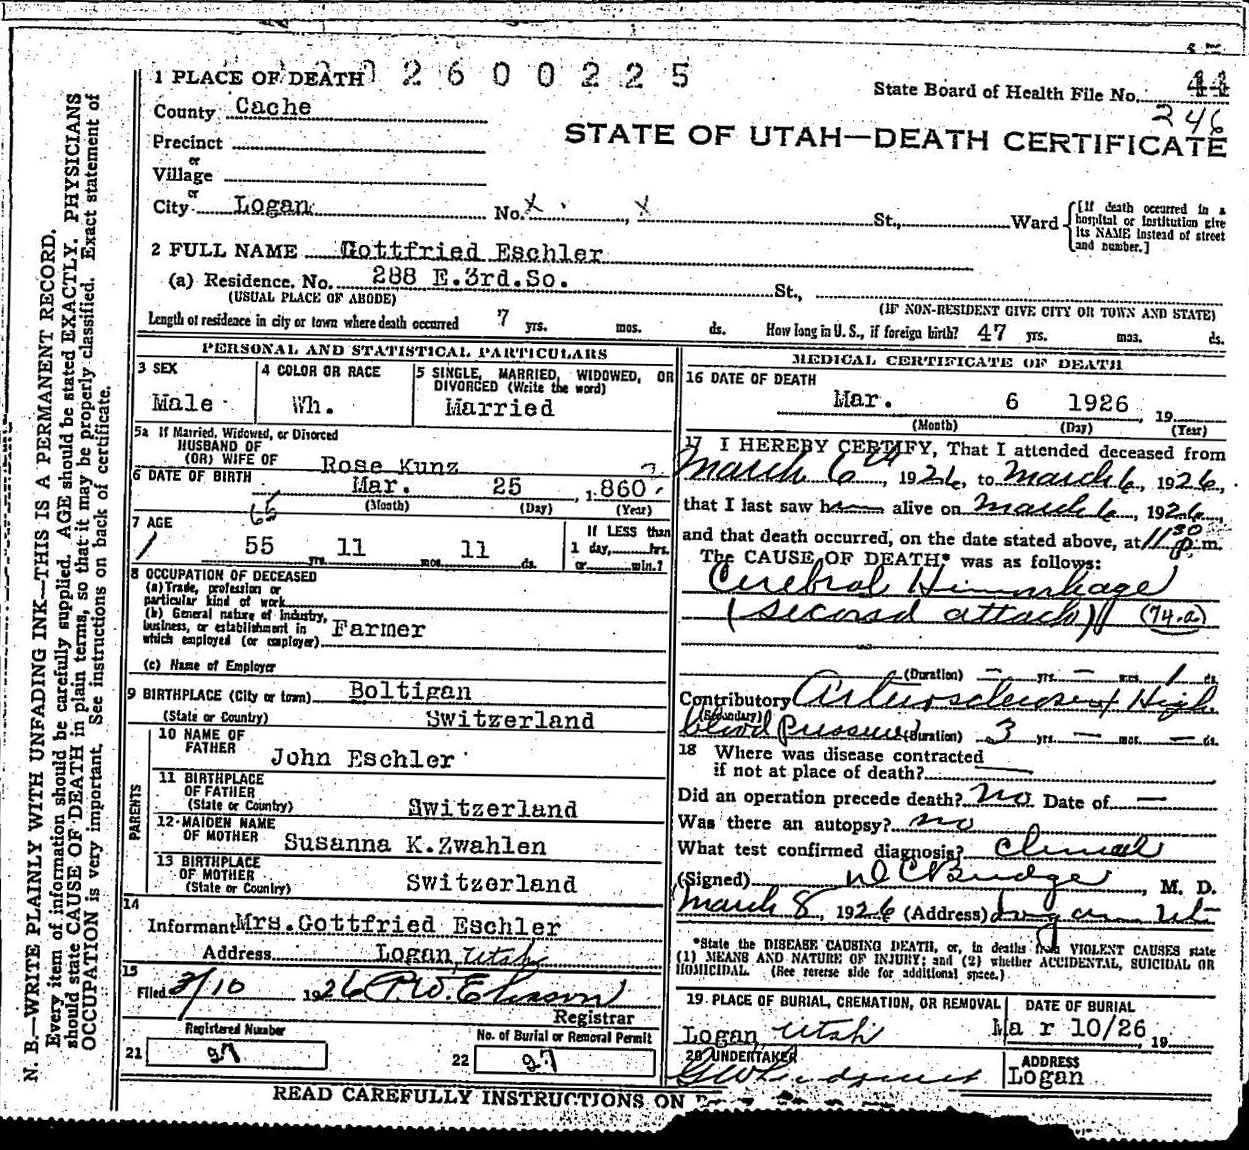 2600225
1 PLACE OF DEATH
State Board of Health File No. 44
246
County Cache
STATE OF UTAH—DEATH CERTIFICATE
Precinct
or
Village
or
City Logan No. x , x St., Ward
[If death occurred in a hospital or institution give its NAME instead of street and number.]
2 FULL NAME Gottfried Eschler
(a) Residence. No. 288 E.3rd.So. St.,
(USUAL PLACE OF ABODE) (IF NON-RESIDENT GIVE CITY OR TOWN AND STATE)
Length of residence in city or town where death occurred 7 yrs. mos. ds. How long in U. S., if foreign birth? 47 yrs. mos. ds.
PERSONAL AND STATISTICAL PARTICULARS
3 SEX
Male
4 COLOR OR RACE
Wh.
5 SINGLE, MARRIED, WIDOWED, OR
DIVORCED (Write the word)
Married
5a If Married, Widowed, or Divorced
HUSBAND OF
(OR) WIFE OF Rose Kunz
6 DATE OF BIRTH Mar. 25, 1860 ?
(Month) (Day) (Year)
65
7 AGE
55 yrs. 11 mos. 11 ds.
If LESS than
1 day,......hrs.
or......min.?
8 OCCUPATION OF DECEASED
(a) Trade, profession or
particular kind of work
(b) General nature of industry,
business, or establishment in
which employed (or employer) Farmer
(c) Name of Employer
9 BIRTHPLACE (City or town) Boltigan
(State or Country) Switzerland
PARENTS
10 NAME OF
FATHER John Eschler
11 BIRTHPLACE
OF FATHER
(State or Country) Switzerland
12 MAIDEN NAME
OF MOTHER Susanna K.Zwahlen
13 BIRTHPLACE
OF MOTHER
(State or Country) Switzerland
14
Informant Mrs.Gottfried Eschler
Address Logan, Utah
15
Filed 3/10 1926
Registrar
Registered Number No. of Burial or Removal Permit
21 27 22 27
MEDICAL CERTIFICATE OF DEATH
16 DATE OF DEATH
Mar. 6 1926, 19
(Month) (Day) (Year)
17 I HEREBY CERTIFY, That I attended deceased from
March 6th, 1926, to March 6, 1926,
that I last saw h alive on March 6, 1926,
and that death occurred, on the date stated above, at 11 30 p.m.
The CAUSE OF DEATH* was as follows:
Cerebral Himmrhage
(second attack) (74.a)
(Duration) – yrs. – mos. 1 ds.
Contributory Arteriosclerosis + High
(Secondary) blood pressure (Duration) 3 yrs. — mos. — ds.
18 Where was disease contracted
if not at place of death?
Did an operation precede death? no Date of —
Was there an autopsy? no
What test confirmed diagnosis? clinical
(Signed) D C Budge, M. D.
March 8, 1926 (Address) Logan Ut
*State the DISEASE CAUSING DEATH, or, in deaths from VIOLENT CAUSES state
(1) MEANS AND NATURE OF INJURY; and (2) whether ACCIDENTAL, SUICIDAL OR
HOMICIDAL. (See reverse side for additional space.)
19 PLACE OF BURIAL, CREMATION, OR REMOVAL
Logan, Utah
DATE OF BURIAL
Mar 10/26, 19
20 UNDERTAKER
ADDRESS
Logan
READ CAREFULLY INSTRUCTIONS ON
N. B.—WRITE PLAINLY WITH UNFADING INK—THIS IS A PERMANENT RECORD.
Every item of information should be carefully supplied. AGE should be stated EXACTLY. PHYSICIANS
should state CAUSE OF DEATH in plain terms, so that it may be properly classified. Exact statement of
OCCUPATION is very important. See instructions on back of certificate.